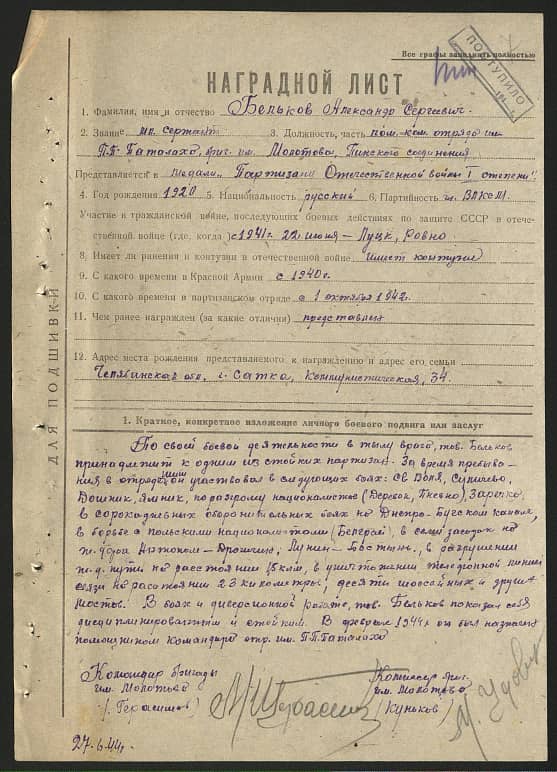 Все графы заполнять полностью
ПОСТУПИЛО
НАГРАДНОЙ ЛИСТ
1. Фамилия, имя и отчество Бельков Александр Сергеевич.
2. Звание мл. сержант 3. Должность, часть пом. ком. отряда им.
П.Г. Баталаха, бриг. им. Молотова, Пинского соединения
Представляется к медали „Партизану Отечественной войны I степени"
4. Год рождения 1920 5. Национальность русский 6. Партийность чл. ВЛКСМ
Участие в гражданской войне, последующих боевых действиях по защите СССР в отече-
ственной войне (где, когда) с 1941г. 22 июня – Луцк, Ровно.
8. Имеет ли ранения и контузии в отечественной войне имеет контузии
9. С какого времени в Красной Армии с 1940г.
10. С какого времени в партизанском отряде с 1 октября 1942г.
11. Чем ранее награжден (за какие отличия)
12. Адрес места рождения представляемого к награждению и адрес его семьи
Челябинская обл. г. Сатка, Коммунистическая, 34.
ДЛЯ ПОДШИВКИ
1. Краткое, конкретное изложение личного боевого подвига или заслуг
По своей боевой деятельности в тылу врага, тов. Бельков
принадлежит к одним из стойких партизан. За время пребыва-
ния в отряде участвовал в следующих боях: Св Воля,
по разгрому националистов
в сорокадневных оборонительных боях на Днепро-Бугском канале,
в борьбе с польскими националистами в семи засадах на
ж. дороге Лунин – в разрушении
ж.д. пути на расстоянии 15 клм, в уничтожении телефонной линии
связи на расстоянии 23 километра, десяти шоссейных и других
мостов. В боях и диверсионной работе, тов. Бельков показал себя
дисциплинированным и стойким. В феврале 1944г он был назначен
помощником командира отр. им. П.Г. Баталаха
Командир бригады
им. Молотова
(Герасимов)
Комиссар бриг.
им. Молотова
(Куньков)
27.6.44г.